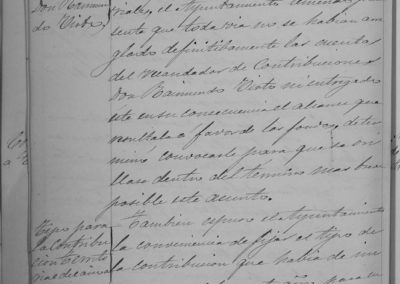 Don Raimun
do Vioto,
el Ayuntamiento
sente que todavia no se habian ar
glado definitibamente las cuentas
del recaudador de Contribuciones
Don Raimundo Vioto ni entregado
este en su consecuencia el alcance que
resultaba a favor de los fondos, deter
minó convocarle para que se
llase dentro del termino mas breve
posible este asunto.
Tipo para
la contribu
cion territo
Tambien espuso el Ayuntamiento
la conveniencia de fijar el tipo de
la contribucion que habia de
para la